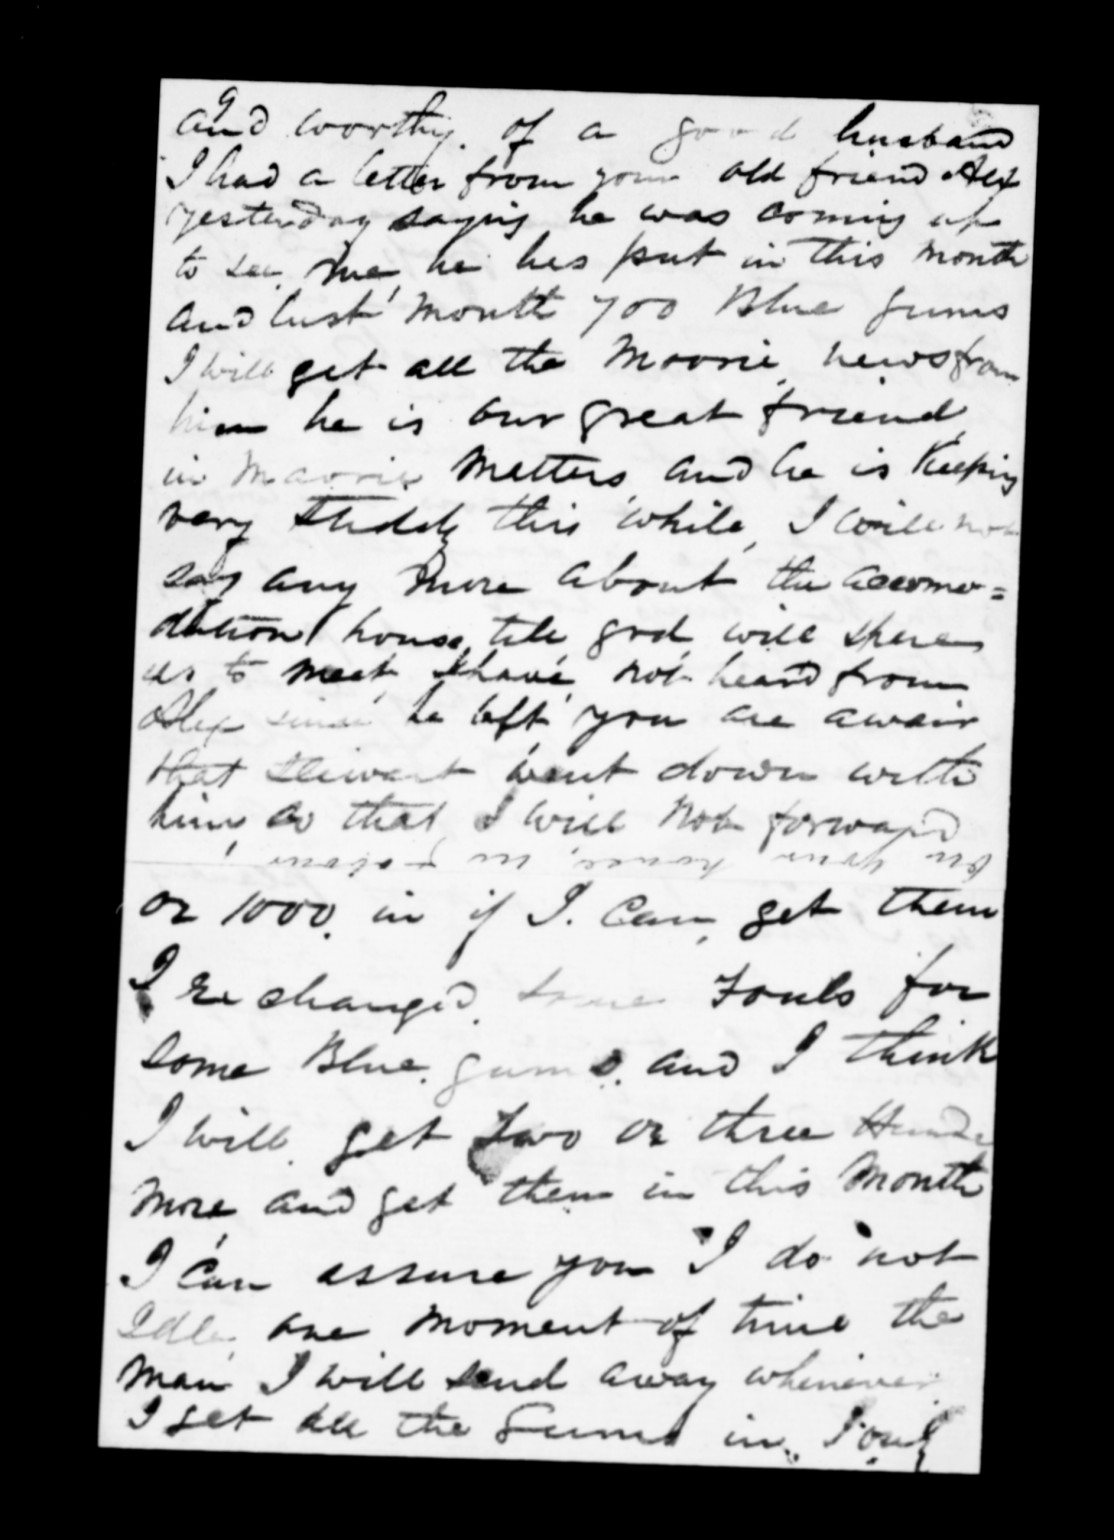 and worthy of a good husband
I had a letter from your old friend Alex
yesterday saying he was coming up
to see me, he hes put in this month
and lust month 700 Blue gums
I will get all the Moorie news from
him he is our great friend
in Maorie Metters and he is Keeping
very Steddy this while, I will not
say any more about the accomo=
dation house till god will spare
us to meet, I have not heard from
Alex since he left you are awair
that Stewart went down with
him, so that I will not forward
or 1000. in if I. Can, get them
I Exchanged some Fouls for
some Blue gums. and I think
I will get Two or three
more and get them in this Month
I can assure you I do not
Idle one moment of time the
man I will send away whenever
I get all the Gums in. I only